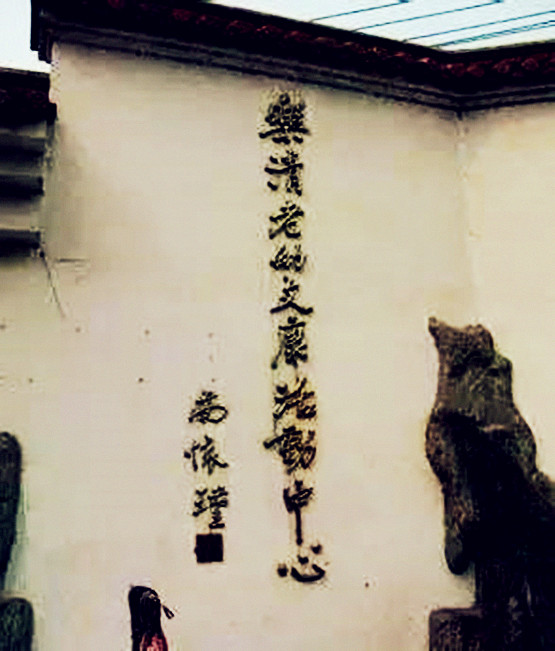 樂清老幼文康活動中心
南懷瑾